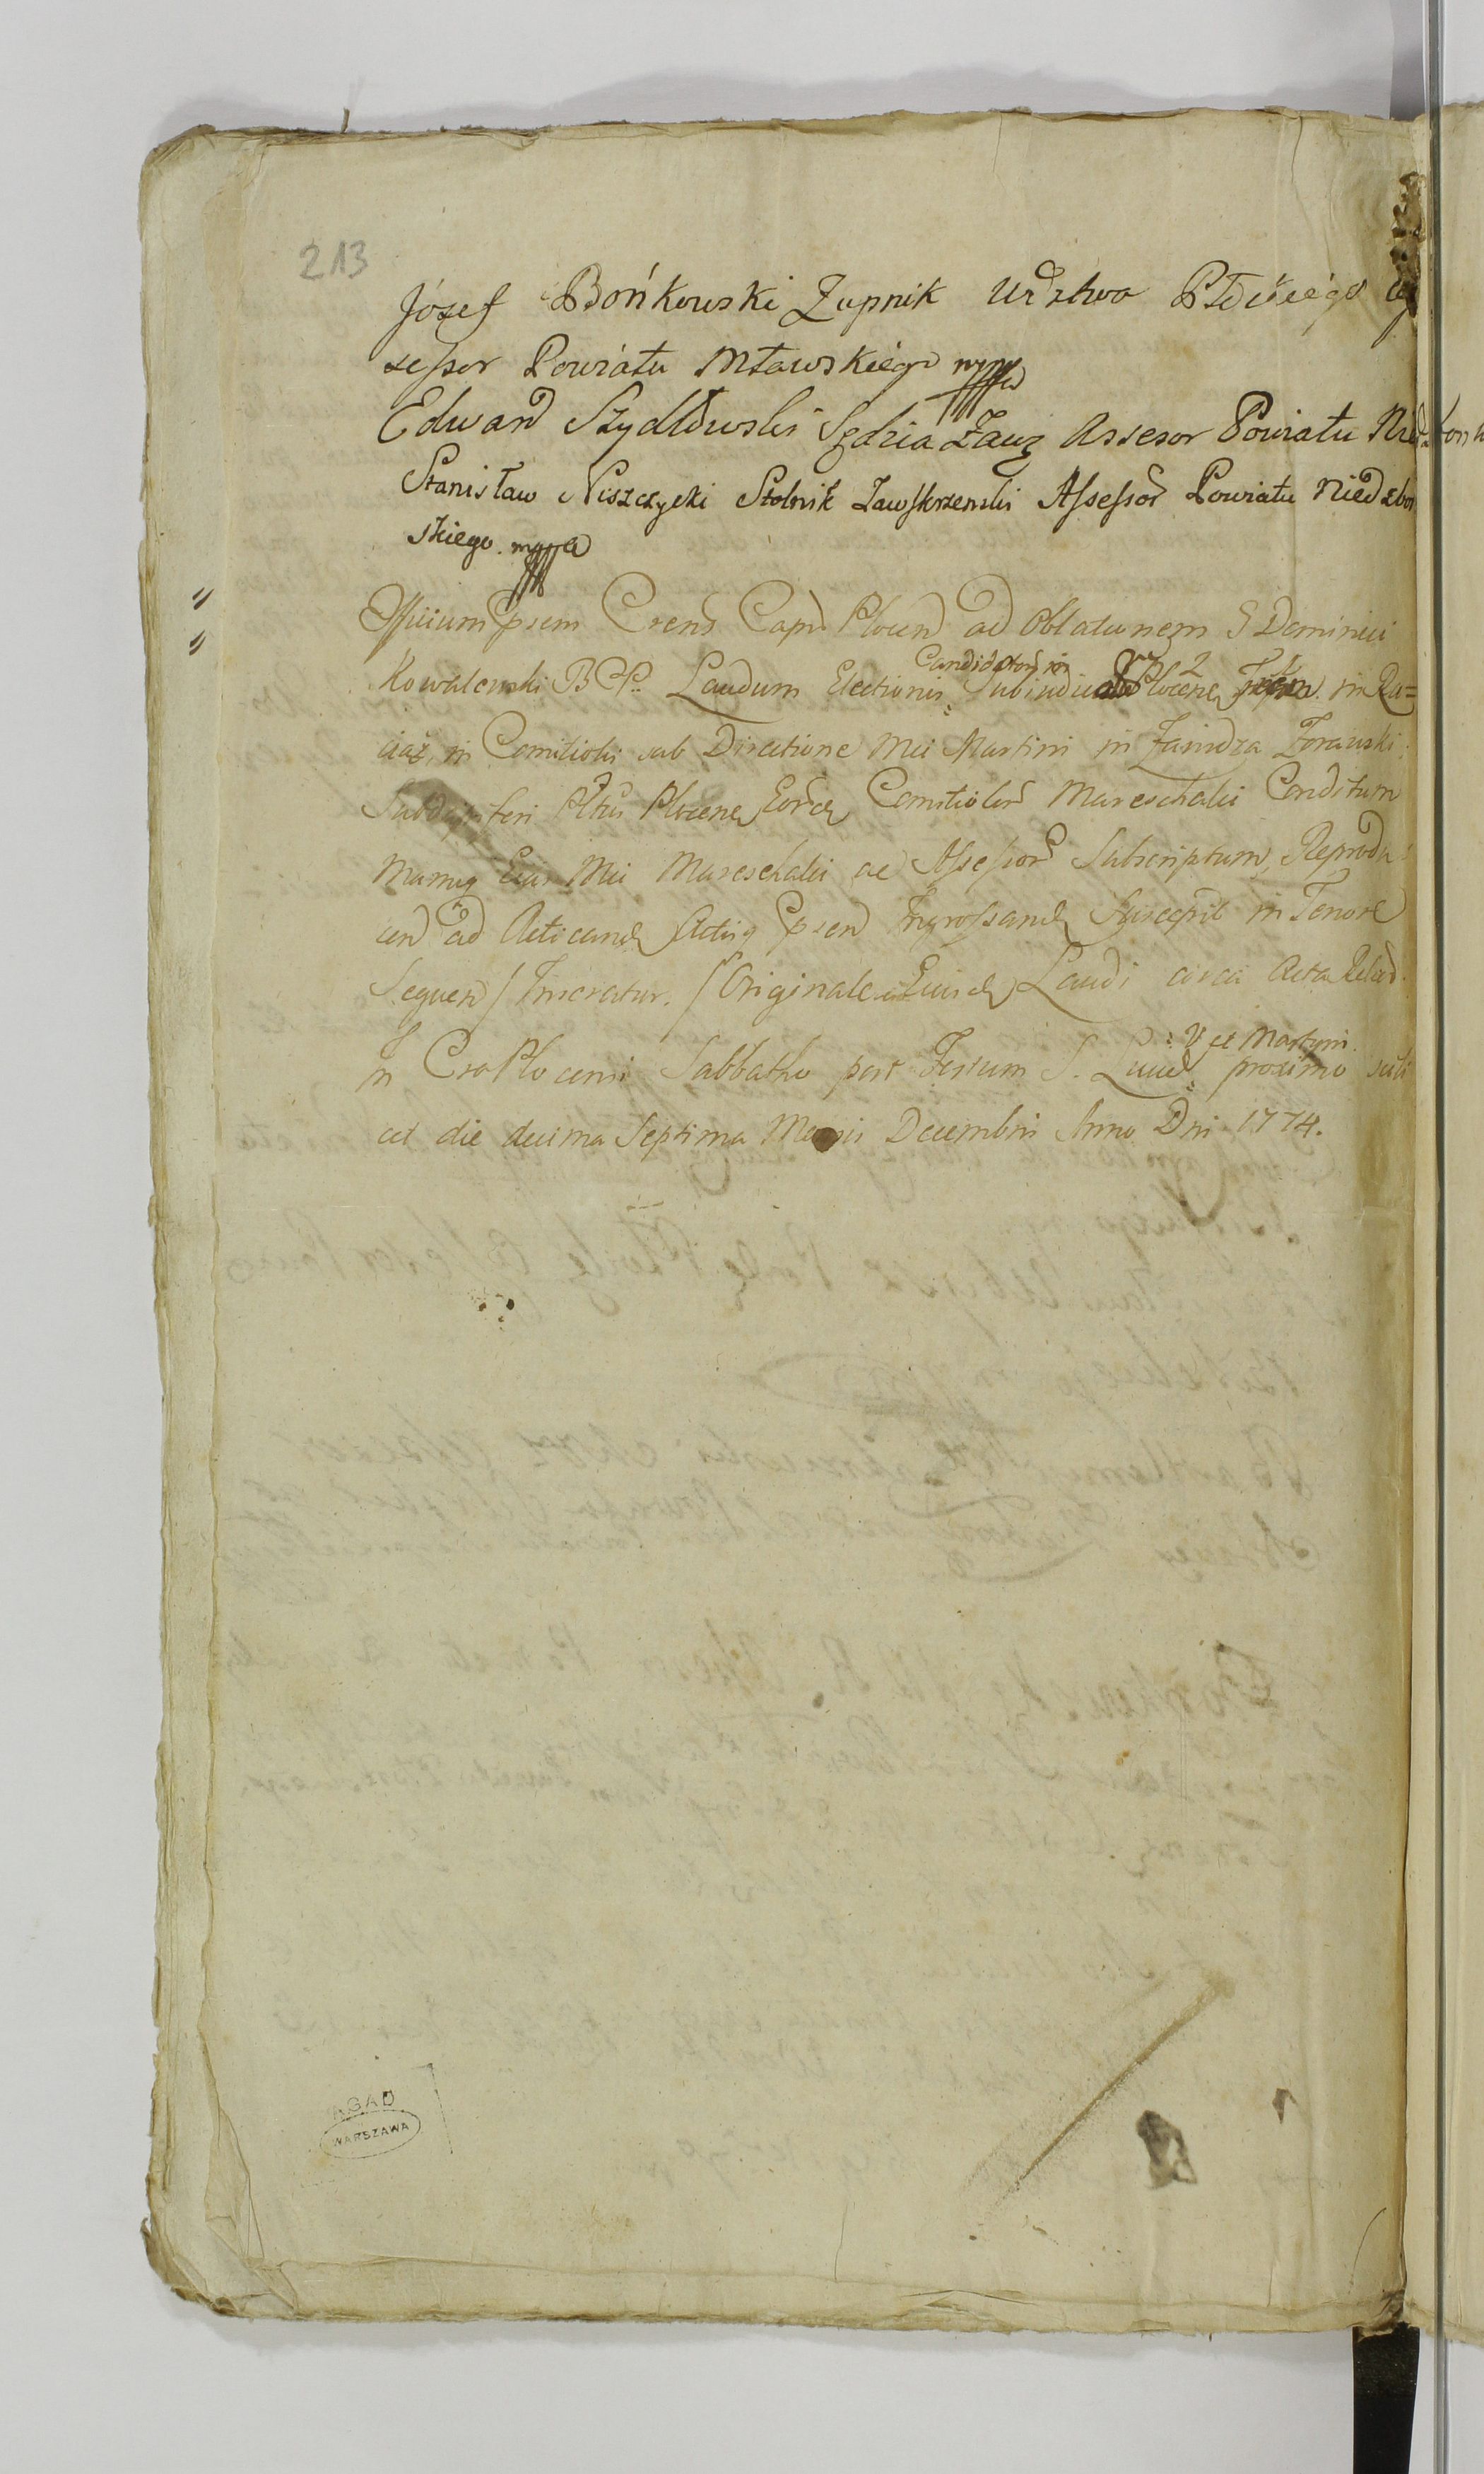 213
Józef Bońkowski Zupnik Wdztwa Płckiego As
sessor Powiatu Mławskiégo mppa
Edward Szydłowski Sędzia Zawz Assesor Powiatu Niedzborsk
Stanisław Niszczycki Stolnik Zawskrzenski Assessor Powiatu Niedzbor
skiego mppa
Officium Cpsem Crens Capn Plocen ad Oblatunem G Dominici
Kowalewski BCP. Laudum Electionis Candidatorum
Subiudicat Plocens in Ra=
ciaż, in Comitiolis sub Directione Mci Martini in Zamdza Zorawski
Subdapiferi Pltus Plocens Eorde Comitiolor Mareschalci Conditum
Manuq Eius Mci Mareschalci ac Assessor Subscriptum, Reprodu
cen ad Acticand Actisq Cpsen Ingrossand Suscepit in Tenore
Sequen / Inseratur. / Originale Eiusd Laudi circa Acta Relict.
in Cro Plocensi Sabbatho post Festum S. Luciæ V et Martyris proximo scili
cet die decima Septima Mensis Decembris Anno Dni 1774.
AGAD
WARSZAWA